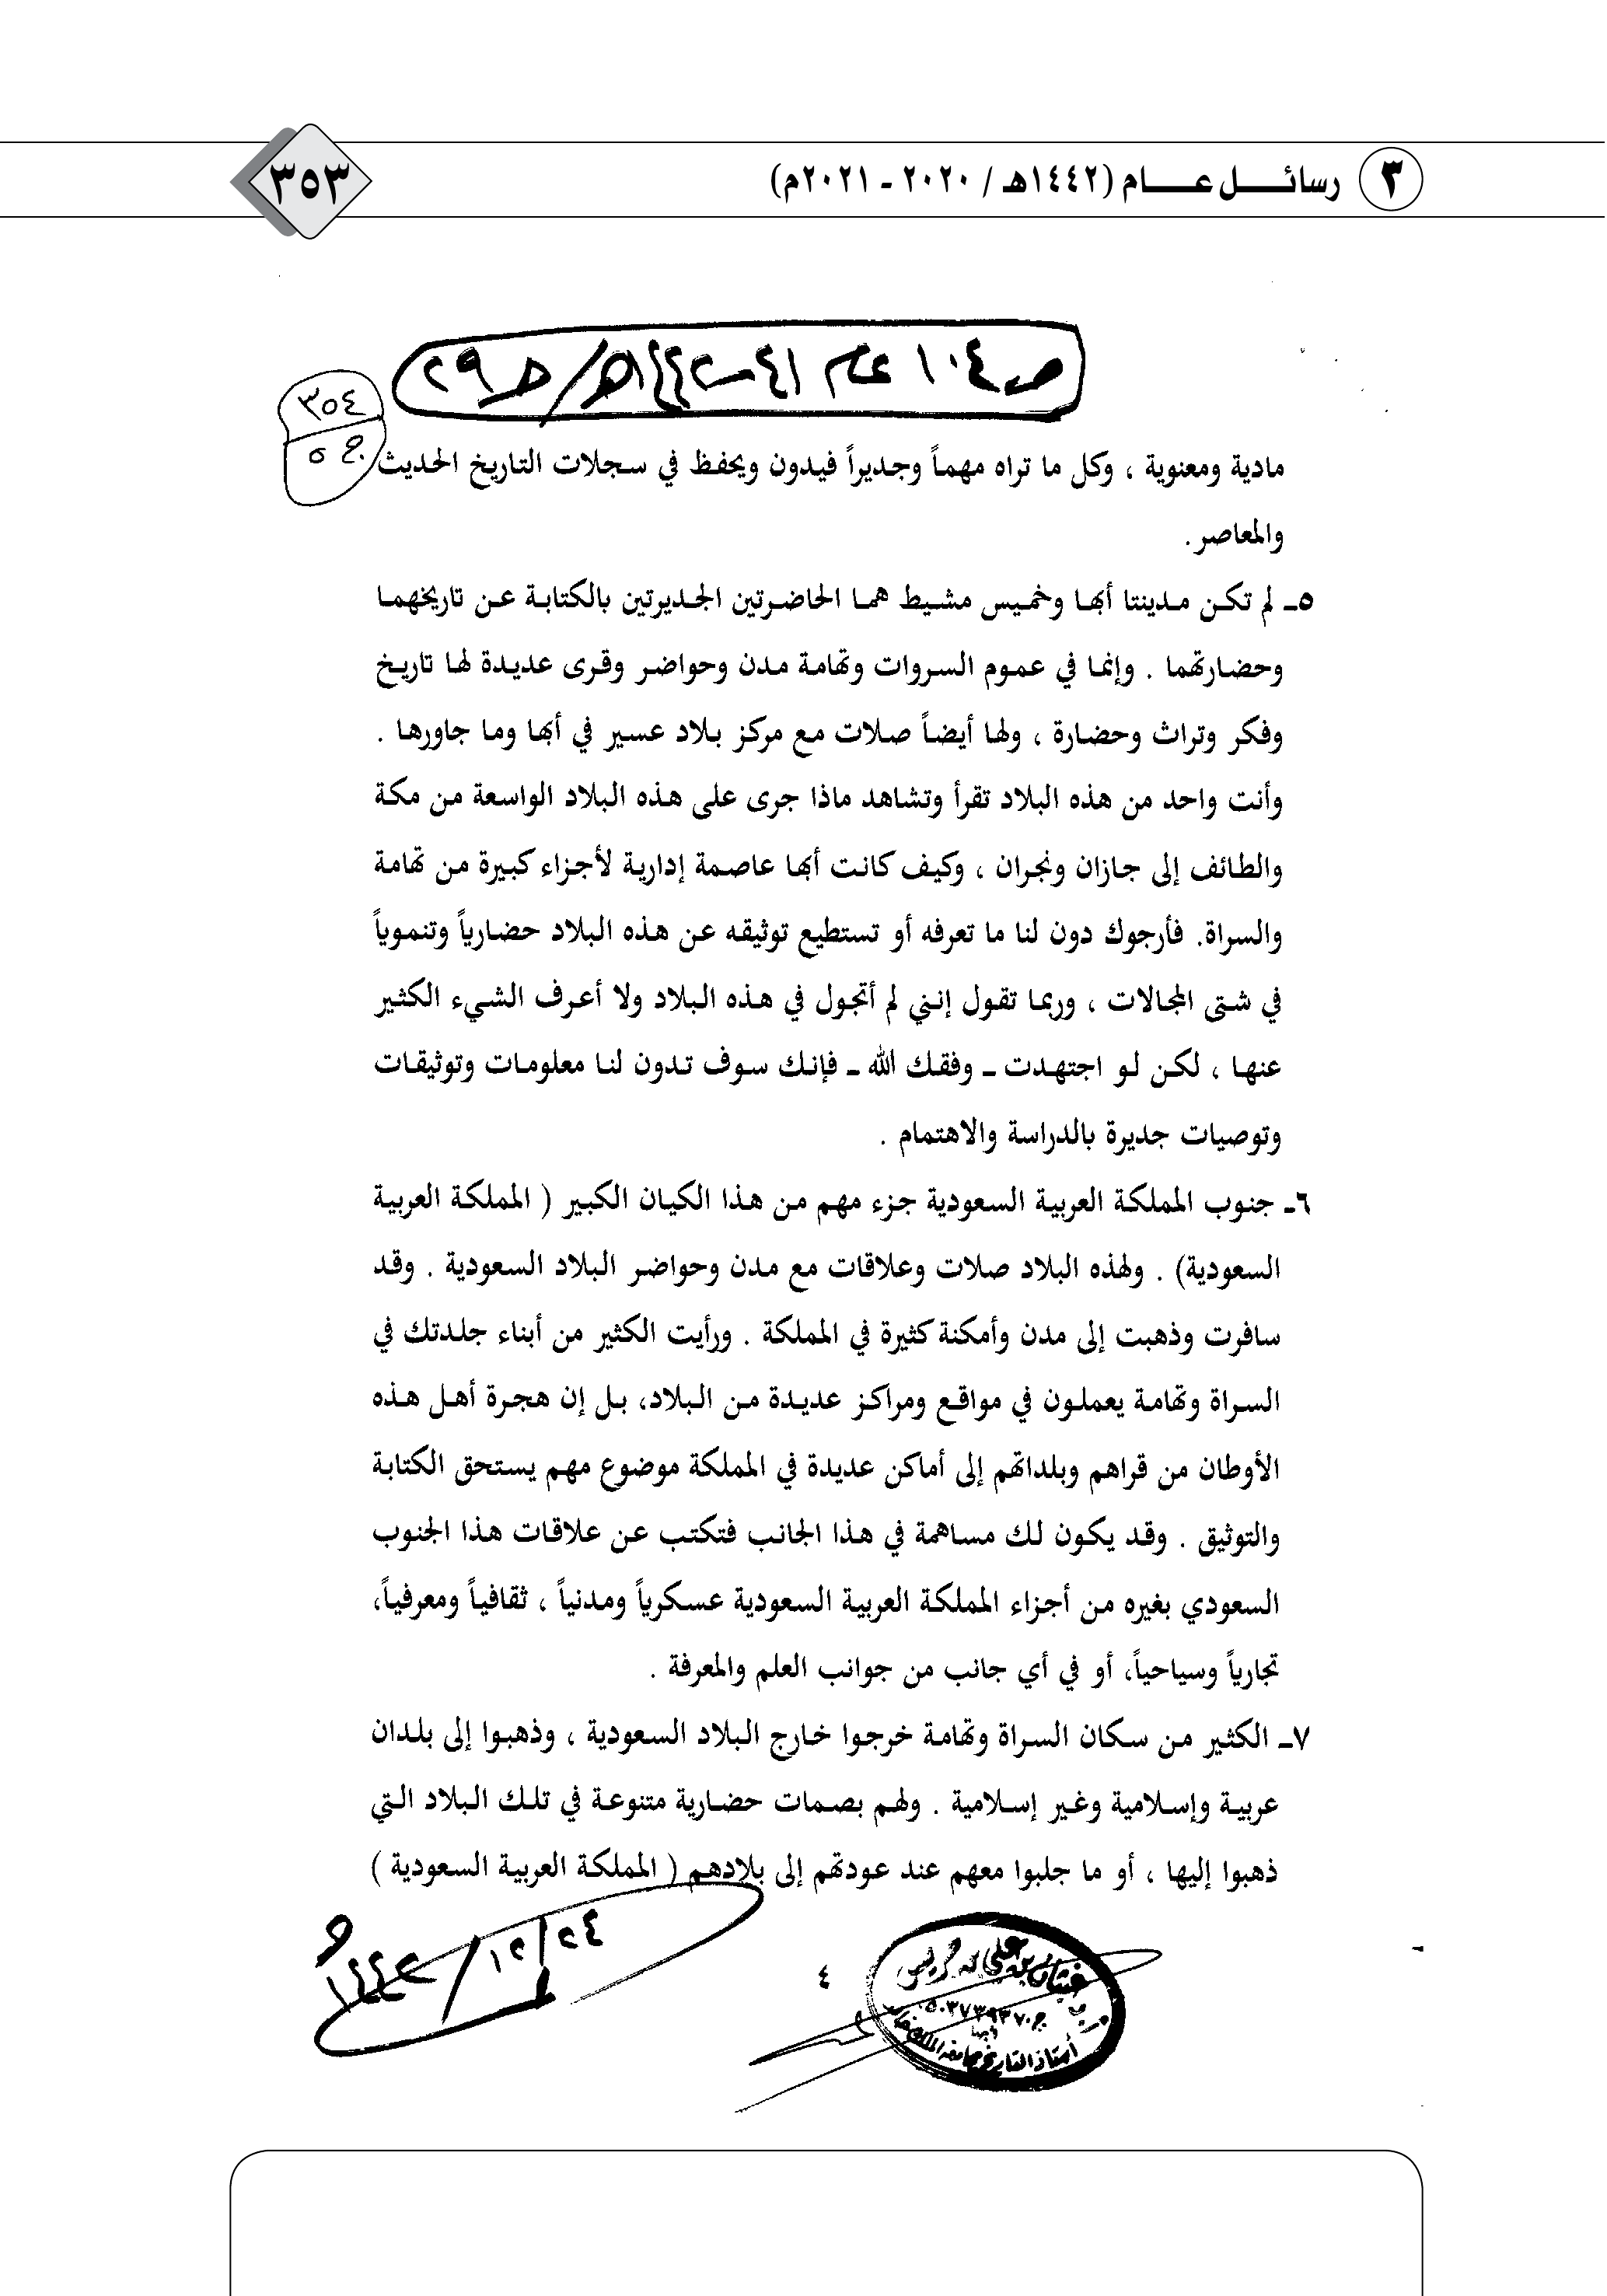 ٣ رسائل عام (١٤٤٢هـ / ٢٠٢٠ - ٢٠٢١م)
٣٥٣
٣٥٤
مادية ومعنوية ، وكل ما تراه مهماً وجديراً فيدون ويحفظ في سجلات التاريخ الحديث
والمعاصر .
٥ـ لم تكن مدينتا أبها وخميس مشيط هما الحاضرتين الجديرتين بالكتابة عن تاريخهما
وحضارتهما . وإنما في عموم السروات وتهامة مدن وحواضر وقرى عديدة لها تاريخ
وفكر وتراث وحضارة ، ولها أيضاً صلات مع مركز بلاد عسير في أبها وما جاورها .
وأنت واحد من هذه البلاد تقرأ وتشاهد ماذا جرى على هذه البلاد الواسعة من مكة
والطائف إلى جازان ونجران ، وكيف كانت أبها عاصمة إدارية لأجزاء كبيرة من تهامة
والسراة. فأرجوك دون لنا ما تعرفه أو تستطيع توثيقه عن هذه البلاد حضارياً وتنموياً
في شتى المجالات ، وربما تقول إنني لم أتجول في هذه البلاد ولا أعرف الشيء الكثير
عنها ، لكن لو اجتهدت ـ وفقك الله ـ فإنك سوف تدون لنا معلومات وتوثيقات
وتوصيات جديرة بالدراسة والاهتمام .
٦ـ جنوب المملكة العربية السعودية جزء مهم من هذا الكيان الكبير ( المملكة العربية
السعودية) . ولهذه البلاد صلات وعلاقات مع مدن وحواضر البلاد السعودية . وقد
سافرت وذهبت إلى مدن وأمكنة كثيرة في المملكة . ورأيت الكثير من أبناء جلدتك في
السراة وتهامة يعملون في مواقع ومراكز عديدة من البلاد، بل إن هجرة أهل هذه
الأوطان من قراهم وبلداتهم إلى أماكن عديدة في المملكة موضوع مهم يستحق الكتابة
والتوثيق . وقد يكون لك مساهمة في هذا الجانب فتكتب عن علاقات هذا الجنوب
السعودي بغيره من أجزاء المملكة العربية السعودية عسكرياً ومدنياً ، ثقافياً ومعرفياً،
تجارياً وسياحياً، أو في أي جانب من جوانب العلم والمعرفة .
٧ـ الكثير من سكان السراة وتهامة خرجوا خارج البلاد السعودية ، وذهبوا إلى بلدان
عربية وإسلامية وغير إسلامية . ولهم بصمات حضارية متنوعة في تلك البلاد التي
ذهبوا إليها ، أو ما جلبوا معهم عند عودتهم إلى بلادهم ( المملكة العربية السعودية )
٤
غيثان بن علي بن جريس
أستاذ التاريخ بجامعة الملك خالد